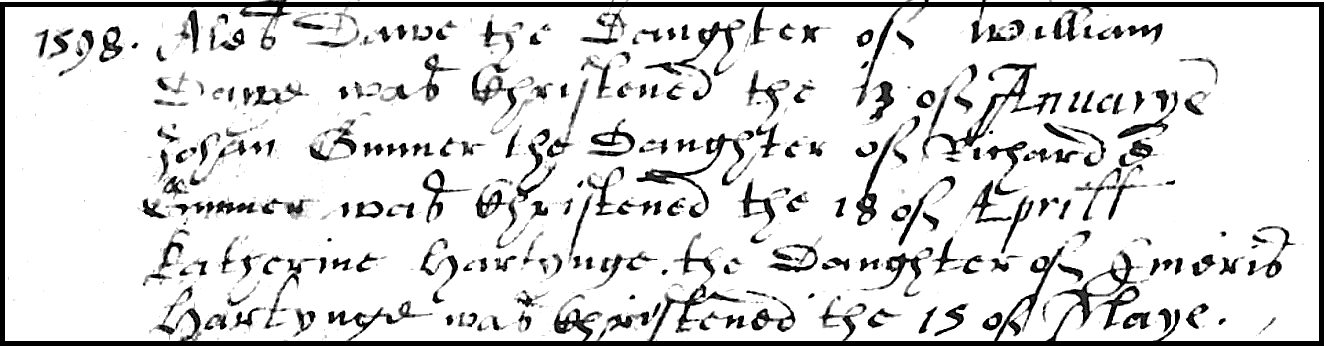 1598. Ales Dawe the Daughter of William
Dawe was Christened the 13 of Januarye
Johan Gunner the Daughter of Richard
Gunner was Christened the 18 of Aprill
Katherine Hartynge. the Daughter of Emeris
Hartynge was Christened the 15 of Maye.